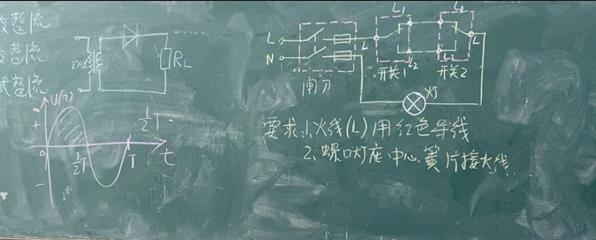 整流
整流
式整流
220V
RL
U(t)
+
0
1/2T
1/2T
T
t
-
L
N
闸刀
L
L1
L2
开关1
L1
L2
L
开关2
灯
要求1、火线(L)用红色导线
2、螺口灯座中心簧片接火线